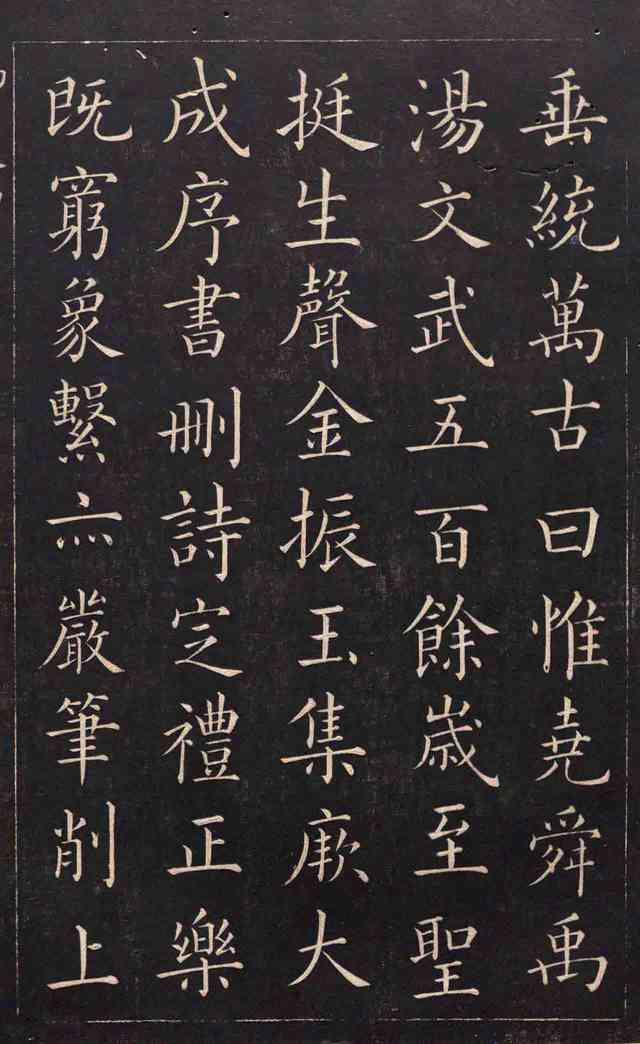 垂統萬古曰惟堯舜禹
湯文武五百餘歲至聖
挺生聲金振玉集厥大
成序書刪詩定禮正樂
既窮象繫亦嚴筆削上